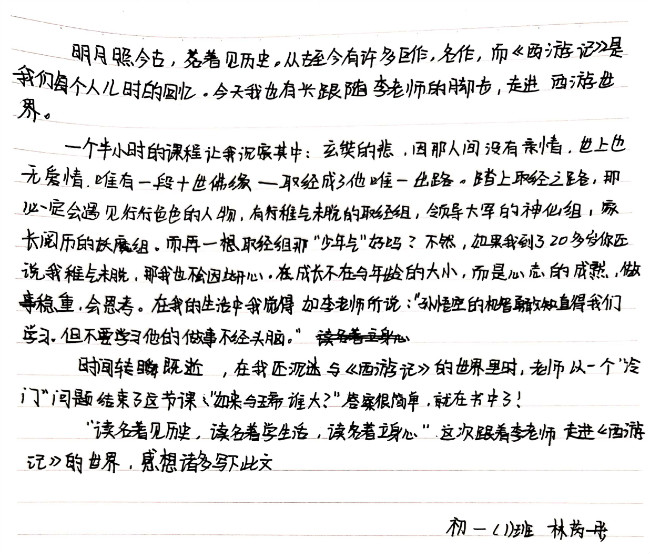 明月照今古,名著见历史。从古至今有许多巨作,名作,而《西游记》是
我们每个人儿时的回忆。今天我也有长跟随李老师的脚步,走进 西游世
界。
一个半小时的课程让我沉寂其中:玄奘的悲,因那人间没有亲情,世上也
无爱情,唯有一段十世佛缘一取经成了他唯一出路。踏上取经之路,那
必一定会遇见行行色色的人物,有稚气未脱的取经组,领导大军的神仙组,家
长阅历的妖魔组。而再一想取经组那"少年气"好吗?不然,如果我到了20多岁你还
说我稚气未脱,那我也不会因此开心。在成长不在与年龄的大小,而是心志的成熟,做
事稳重,会思考。在我的生活中我觉得 如李老师所说:"孙悟空的机智勇敢知直得我们
学习,但不要学习他的做事不经头脑。" 读名著立身心
时间转瞬既逝 ,在我还沉迷与《西游记》的世界里时,老师以一个"冷
门"问题结束了这节课:"如来与玉帝谁大?"答案很简单,就在书中了!
"读名著见历史,读名著学生活,读名著立身心"这次跟着李老师 走进《西游
记》的世界,感想诸多写下此文
初一(1)班 林芮